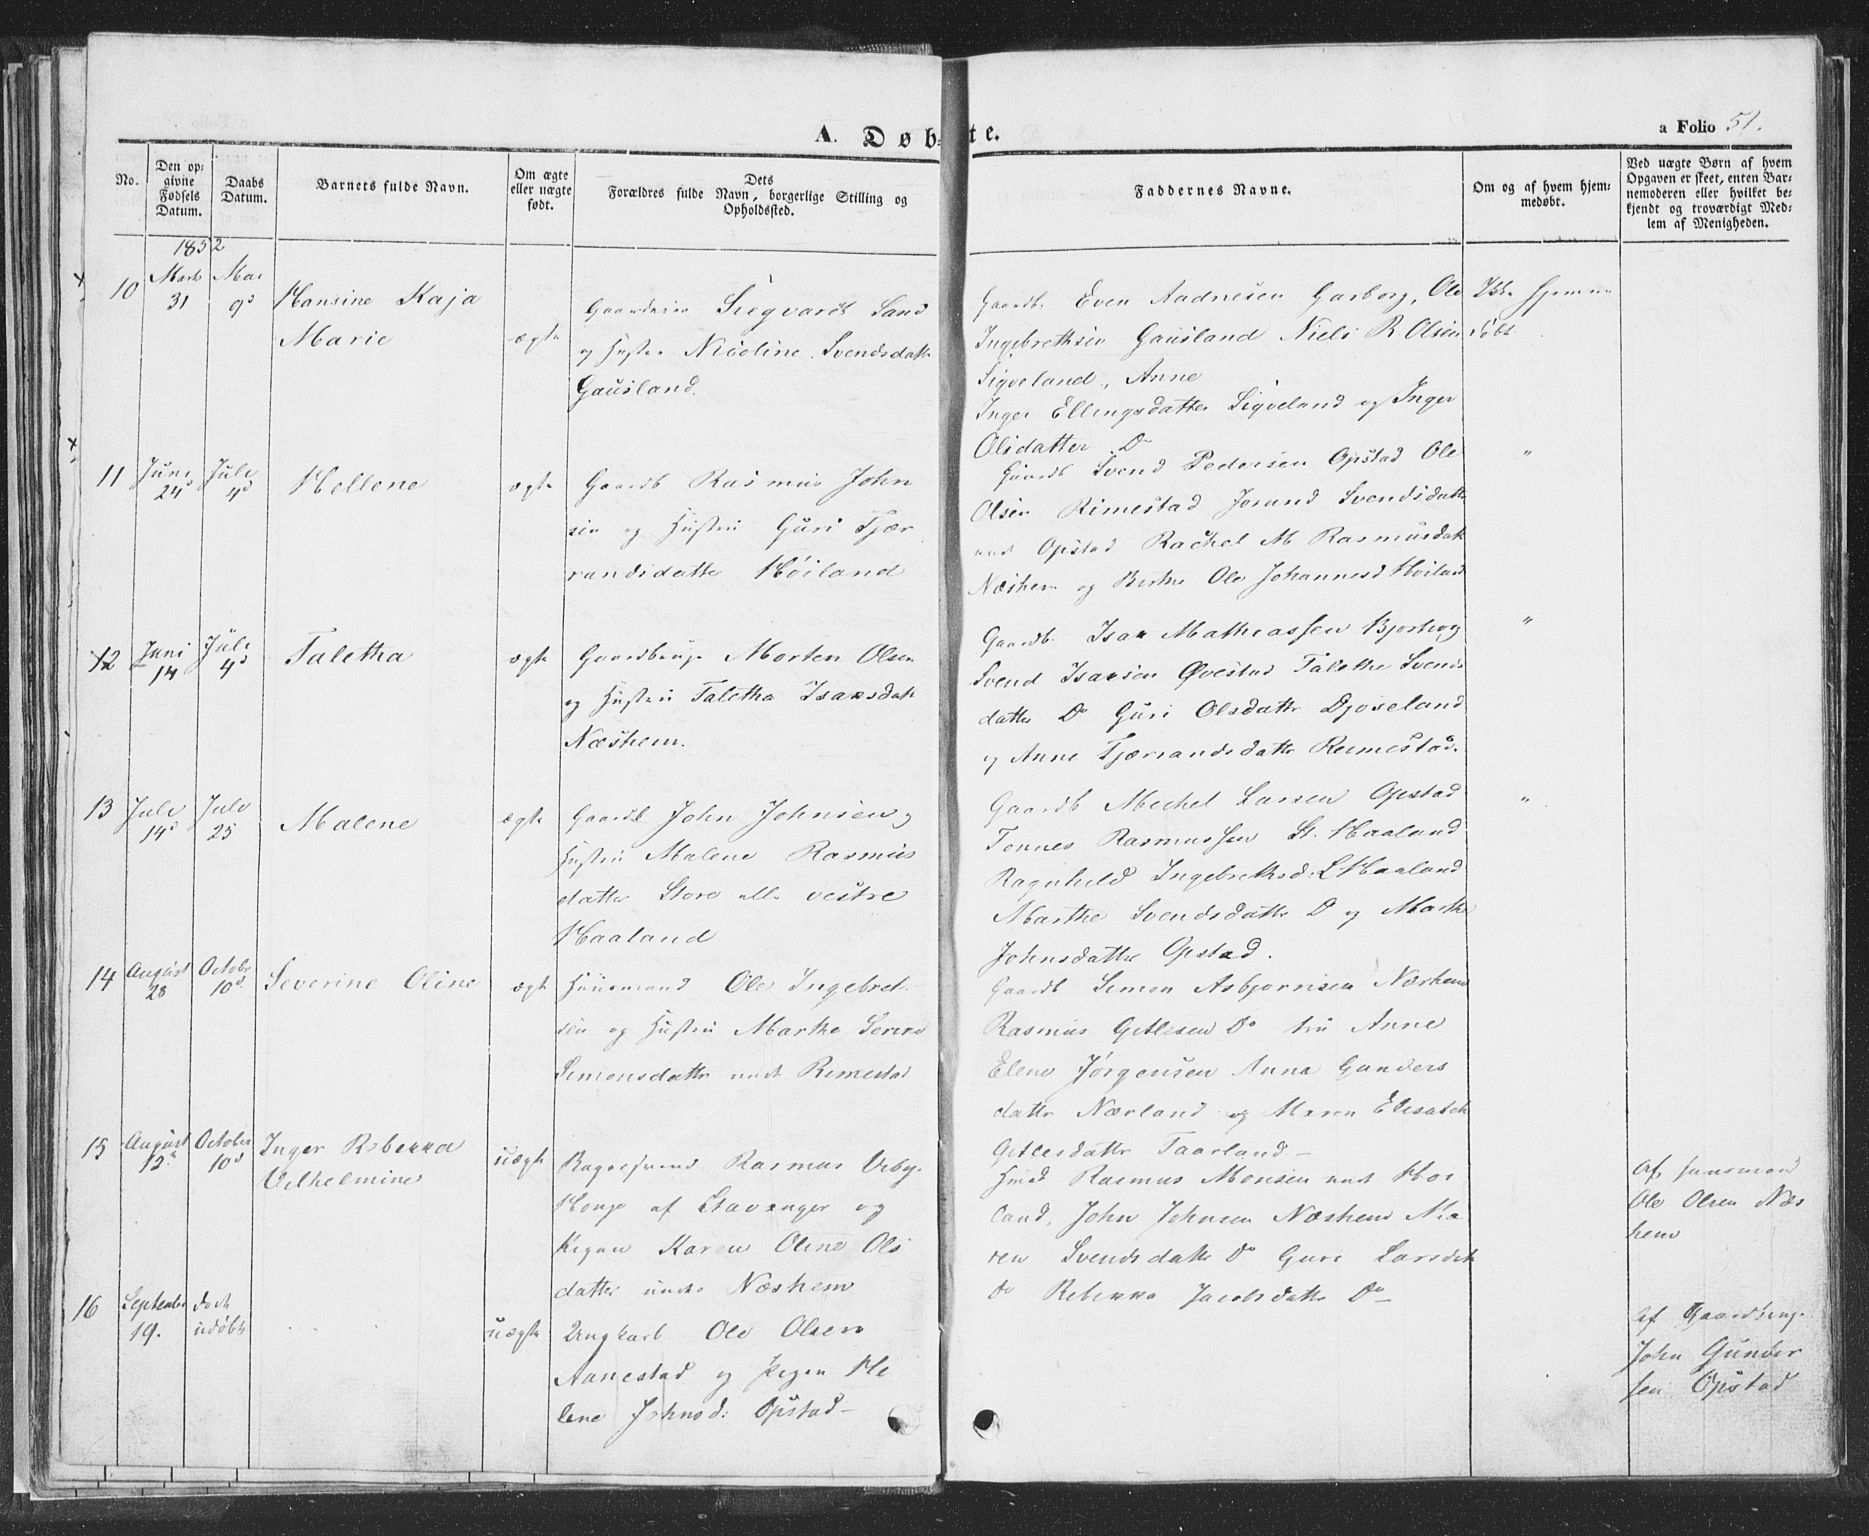 A. Døbte.
a Folio 51.
No.
Den opgivne Fødsels Datum.
Daabs Datum.
Barnets fulde Navn.
Om ægte eller uægte født.
Dets Forældres fulde Navn, borgerlige Stilling og Opholdssted.
Faddernes Navne.
Om og af hvem hjemmedøbt.
Ved uægte Børn af hvem Opgaven er skeet, enten Barnemoderen eller hvilket bekjendt og troværdigt Medlem af Menigheden.
1852
10 Marts 31 Mai 9d Hansine Kaja
Marie
ægte
Siegvardt Sand
og Hustru Nicoline Svendsdatt
Gausland.
Gaardb. Even Aadnesen Garborg, Ole
Ingebrethsen Gausland Niels R Olsen
Sigveland, Anne
Inger Ellingsdatter Sigveland og Inger
Olsdatter Do
Ikke hjemme
døbt
11 Juni 24d Juli 4d Hellene
ægte
Gaardb Rasmus John
sen og Hustru Guri Tjær
randsdatte Høiland
Gaardb Svend Pedersen Opstad Ole
Olsen Rimestad Jorand Svendsdatte
Opstad Rachel M Rasmusdatt
Næshem og Birthe Ole Johannesd Høiland
"
12 Juni 14 Juli 4d Taletha
ægte
Gaardbruger Morten Olsen
og Hustru Taletha Isaksdatt
Næshem.
Gaardb. Isak Mathiassen Bjorhoug
Svend Isaksen Øvestad Talethe Svends
datter Do Guri Olsdatte Djøseland
og Anne Tjærrandsdatte Reimestad.
"
13 Juli 14d Juli 25 Malene
ægte
Gaardb John Johnsen og
Hustru Malene Rasmus
datter Store elle vestre
Haaland
Gaardb Mechel Larsen Opstad
Tonnes Rasmussen St. Haaland
Ragnheld Ingebrethsd. L Haaland
Marthe Svendsdatte D og Marthe
Johnsdatter Opstad.
"
14 August 28 Octobr 10d Severine Oline
ægte
Huusmand Ole Ingebret
sen og Hustru Marthe Serine
Simonsdatte undt Rimestad
Gaardb Simon Asbjornsen Næshem
Rasmus Gitlesen Do Anne
Elene Jörgensen Anna Gunders
datte Nærland og Maren Elisabeth
Gitlesdatte Taarland
15 August 12d October 10d Inger Rebekka
Vilhelmine
uægte
Rasmus Urby
af Stavanger og
Pigen Karen Oline Ols
datter under Næshem
Hmd Rasmus Monsen undt Hoi
land, John Johnsen Næshem Ma
ren Svendsdatte Do Guri Larsdatt
Do Rebekka Jacobsdatte Do
Af Huusmand
Ole Olsen Næs
hem
16 September 19. dødt udøbt
uægte
Ungkarl Ole Olsen
Aanestad og Pigen He
lene Johnsd: Opstad
af Gaardbrug.
John Gunder
sen Opstad